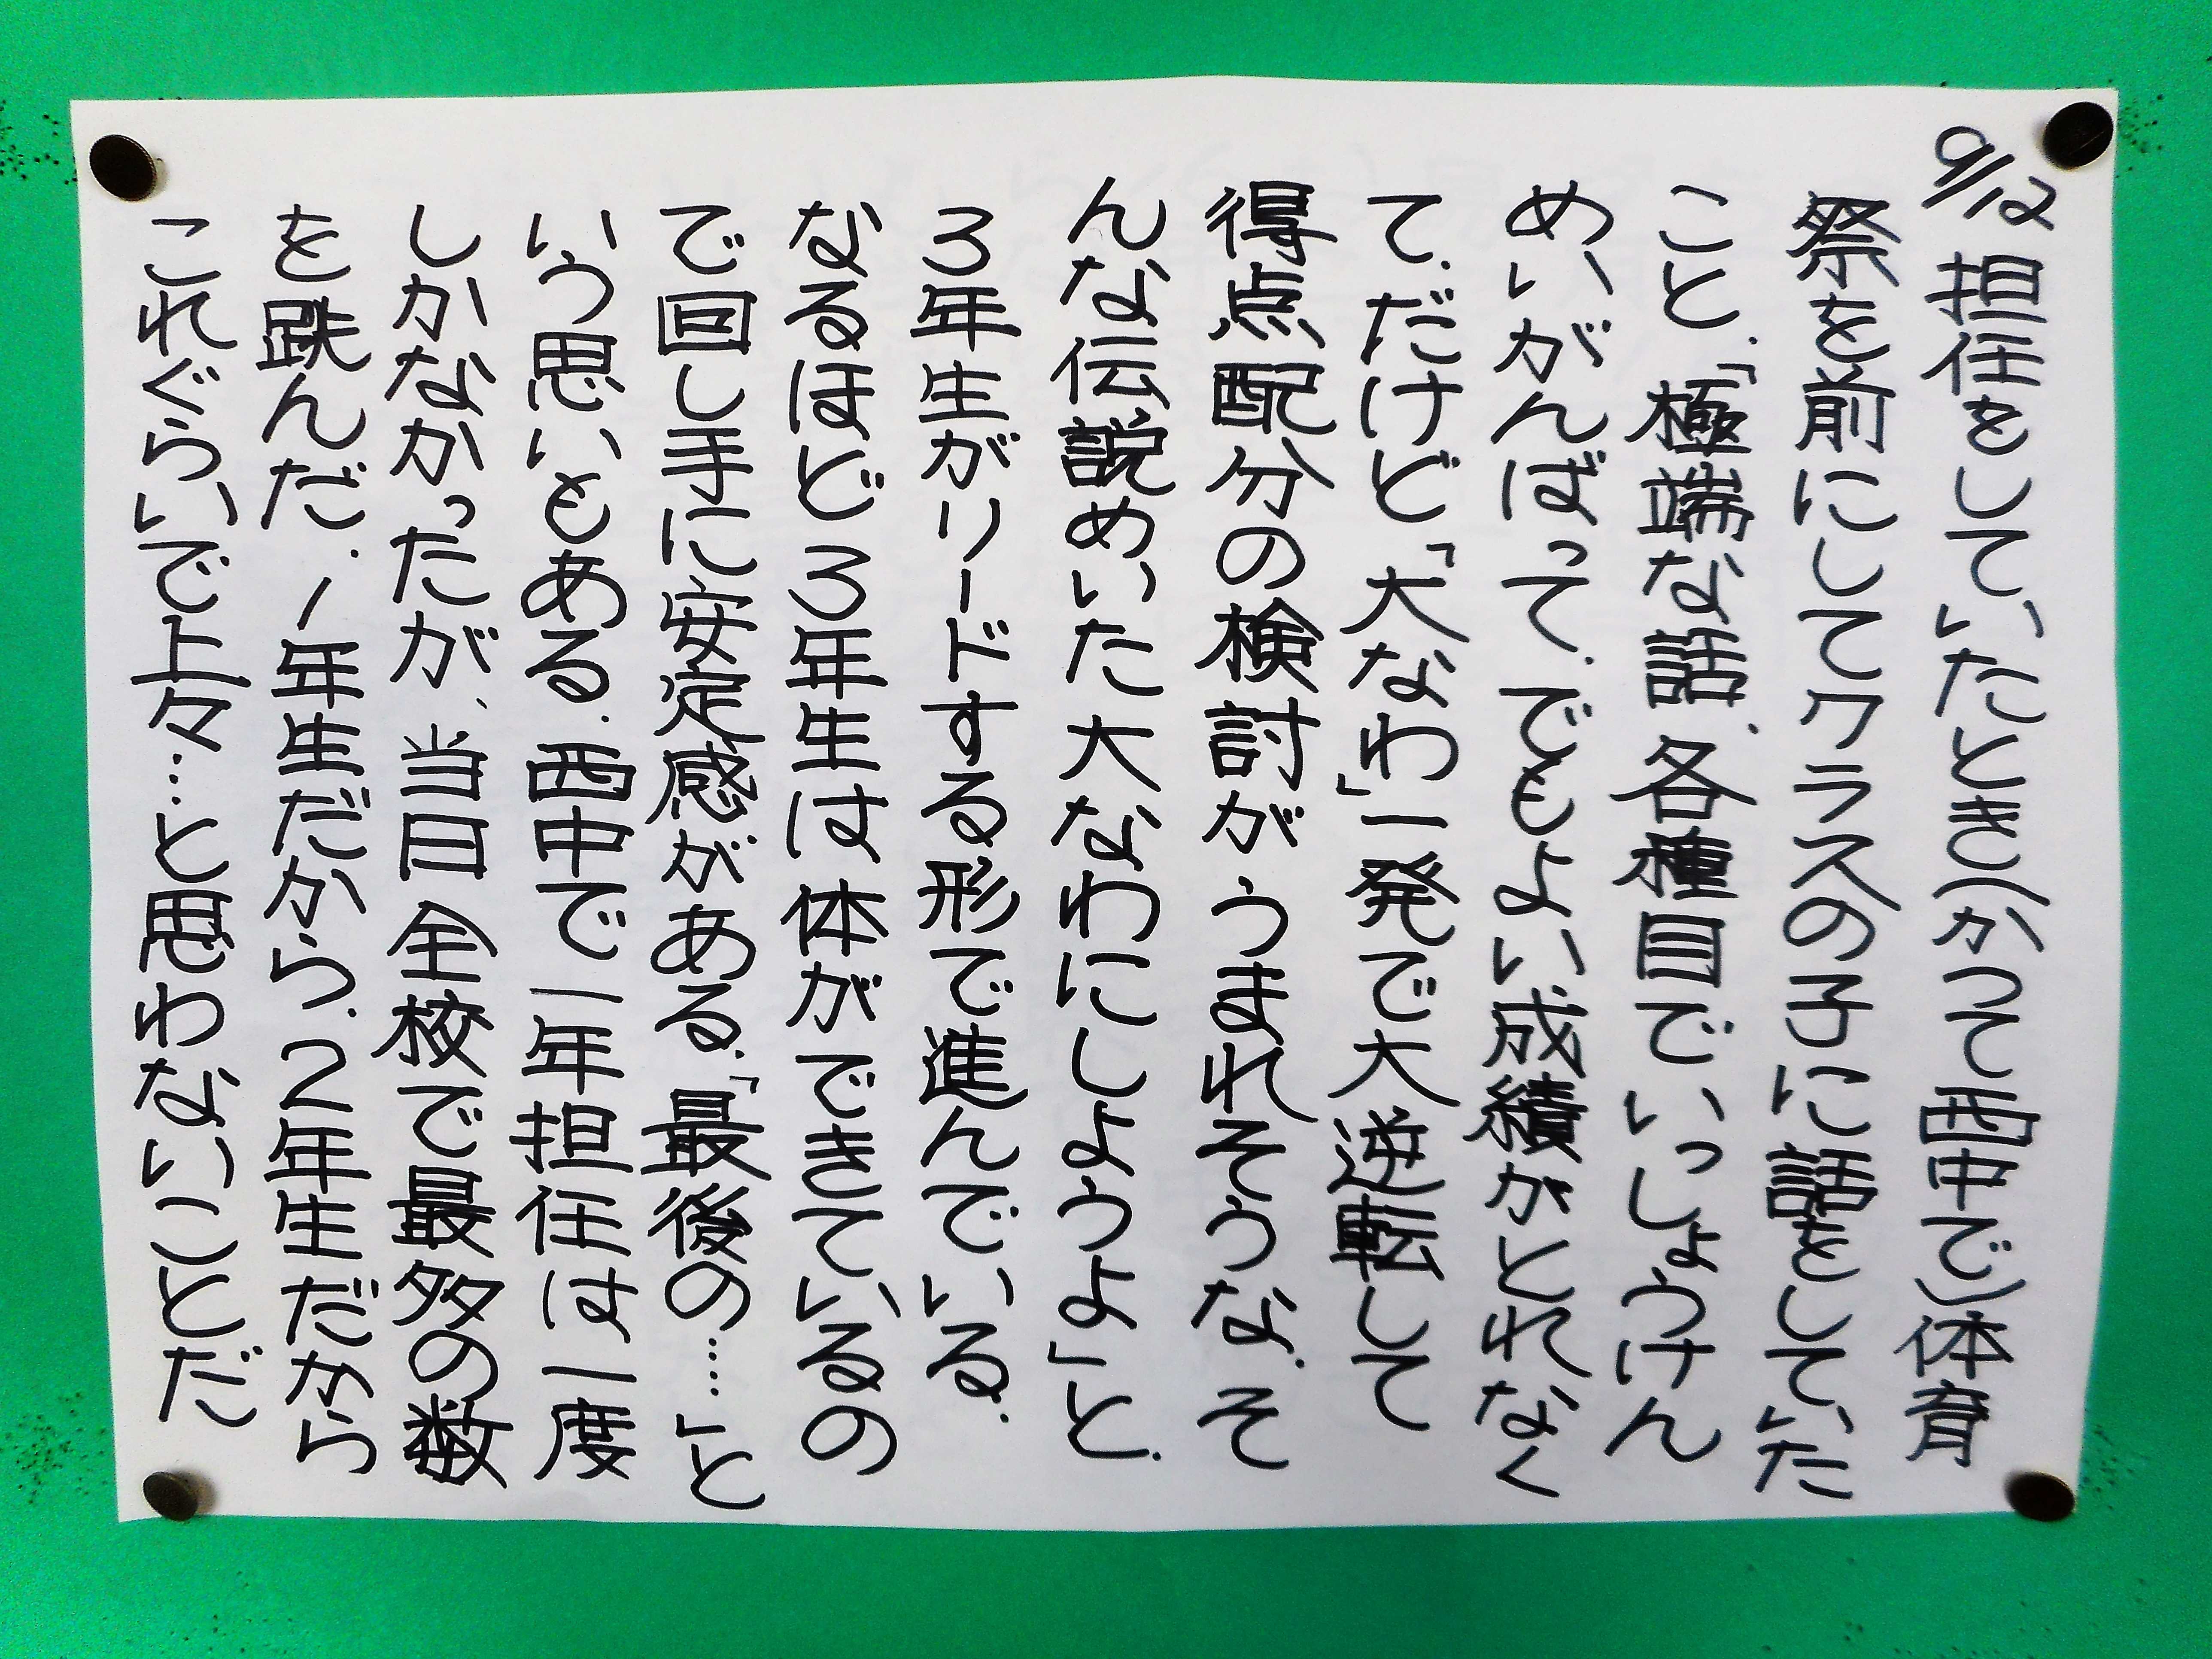 9/12 担任をしていたとき(かつて西中で)体育
祭を前にしてクラスの子に話をしていた
こと.「極端な話.各種目でいっしょうけん
めいがんばって.でもよい成績がとれなく
て.だけど「大なわ」一発で大逆転して
得点配分の検討がうまれそうな.そ
んな伝説めいた大なわにしようよ」と.
3年生がリードする形で進んでいる.
なるほど3年生は体ができているの
で回し手に安定感がある.「最後の……」と
いう思いもある.西中で一年担任は一度
しかなかったが、当日全校で最多の数
を跳んだ.1年生だから.2年生だから
これぐらいで上々…と思わないことだ